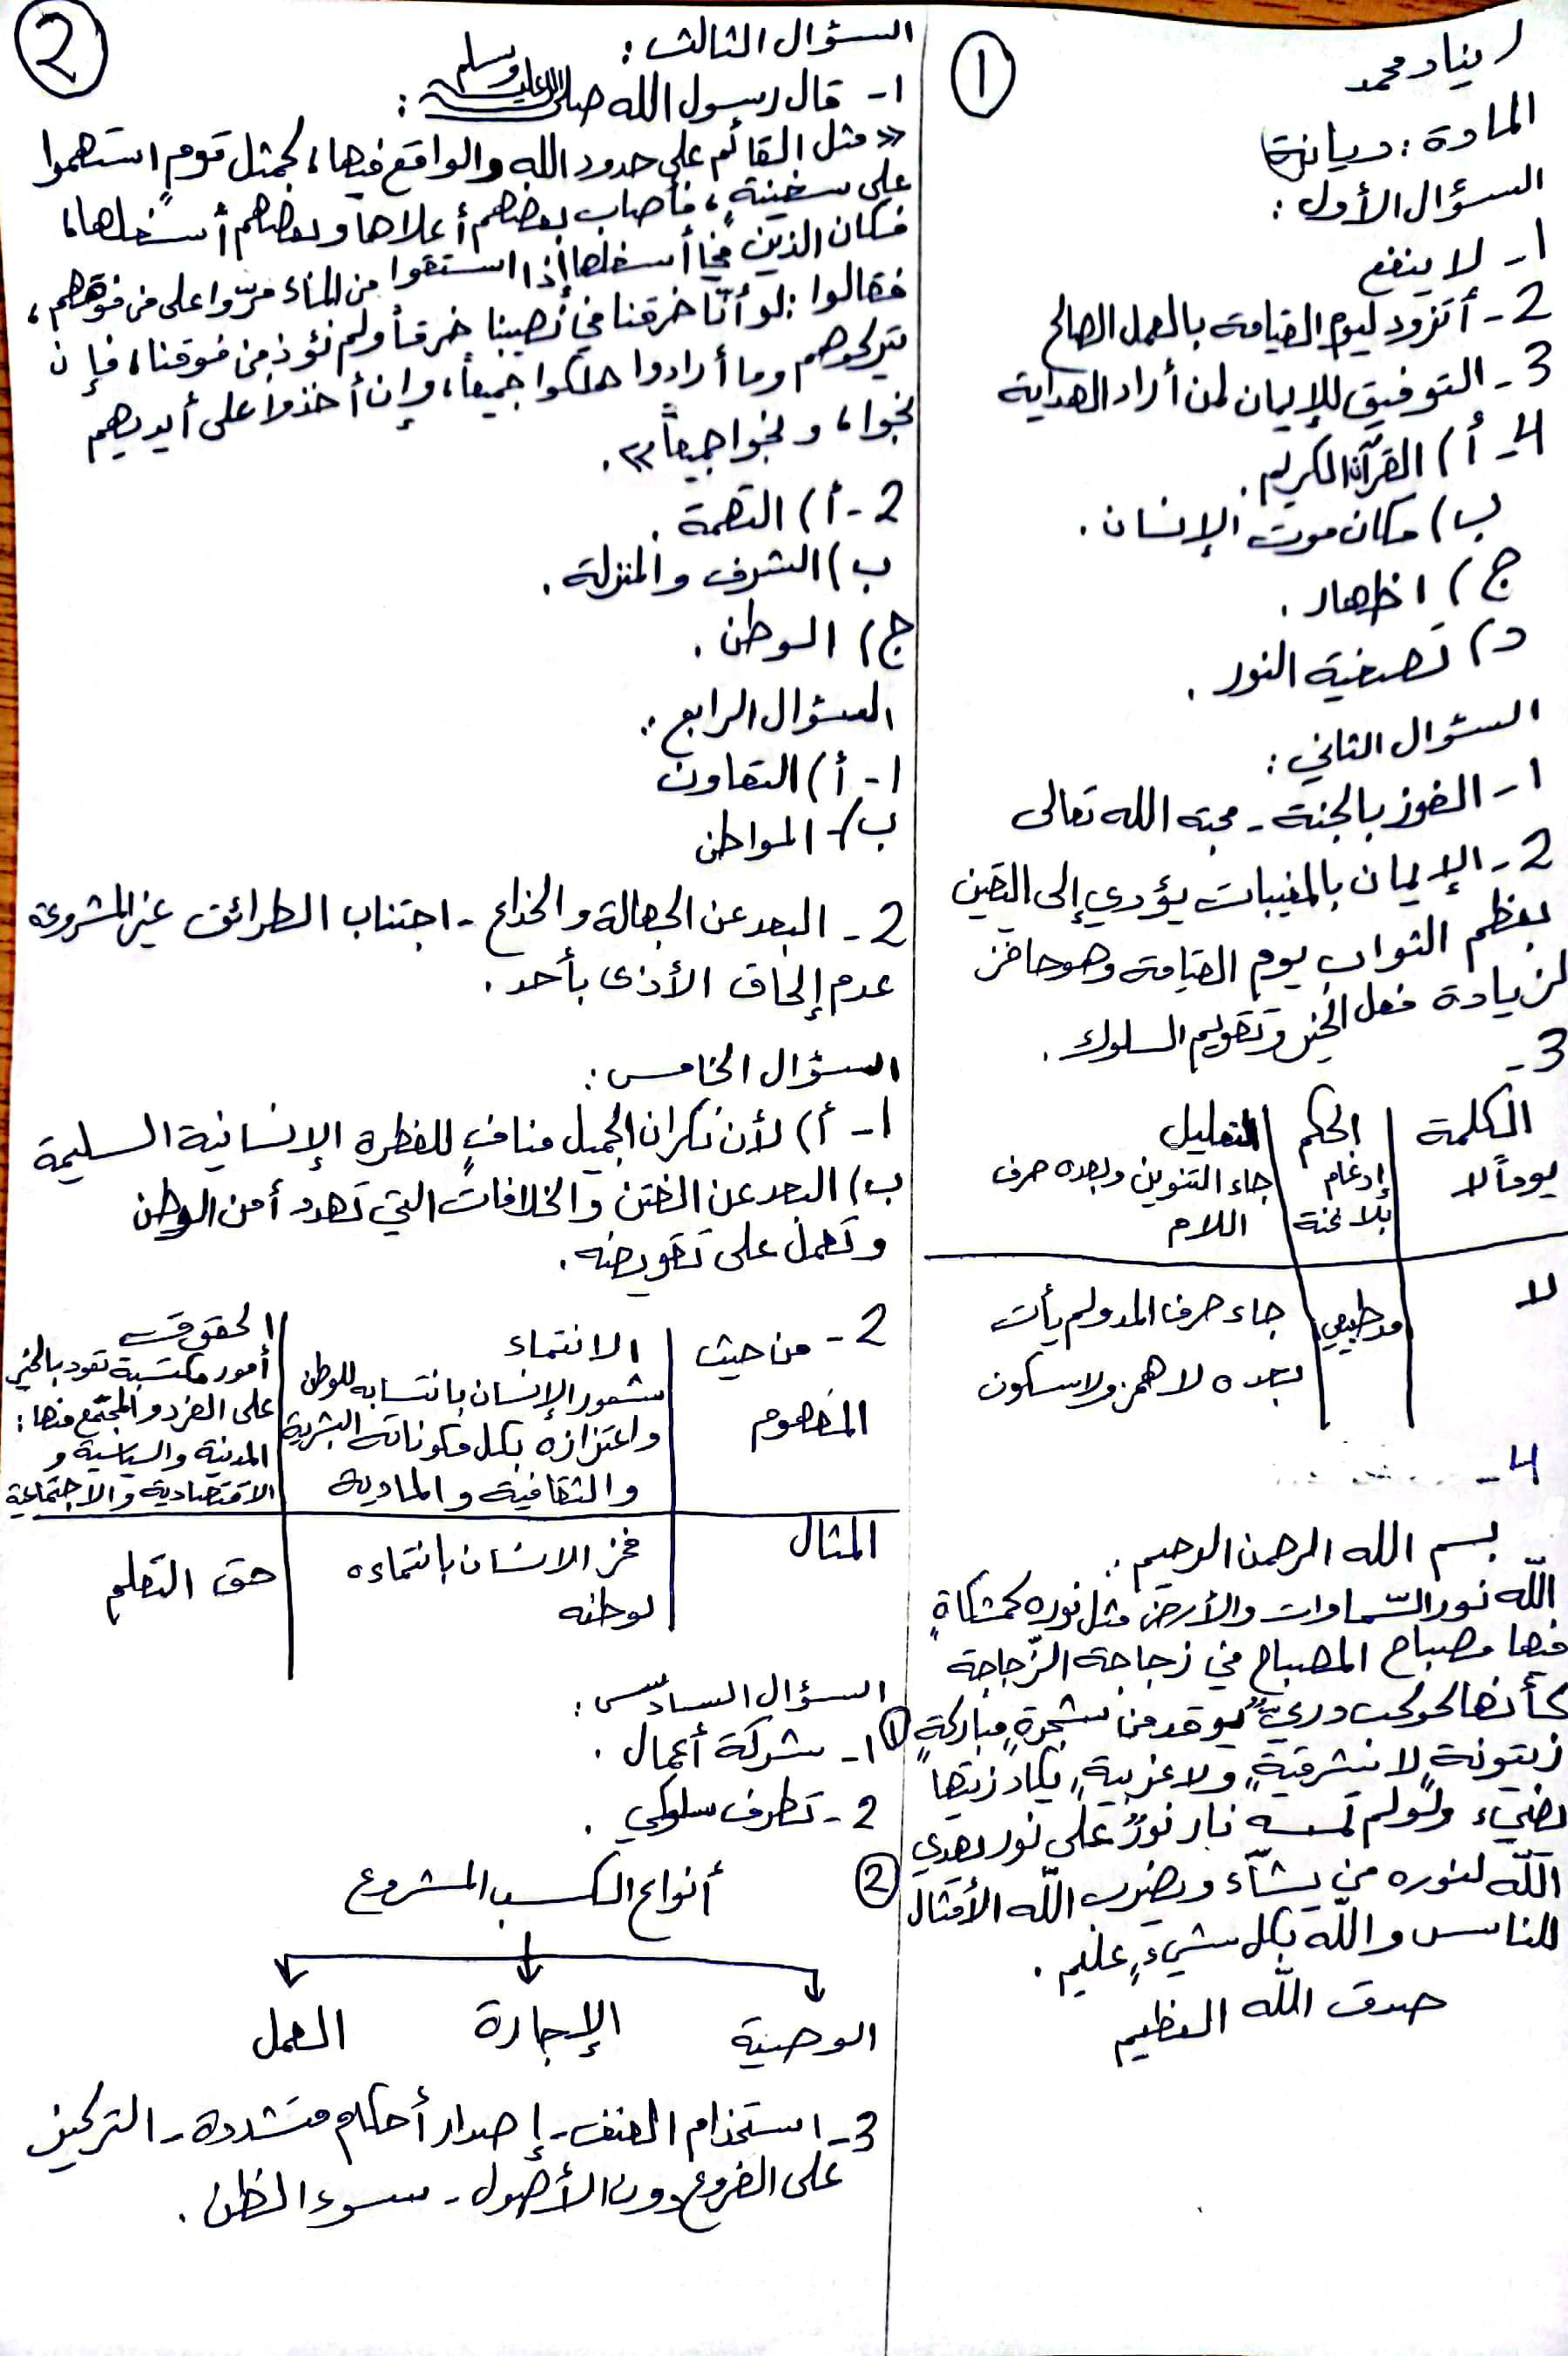 1
ايناد محمد
المادة : ديانة
السؤال الأول :
1- لا ينفع
2- أتزود ليوم القيامة بالعمل الصالح
3- التوفيق للإيمان لمن أراد الهداية
4- أ) القرآن الكريم .
ب) مكان موت الإنسان .
ج) اظهار .
د) تصفية النور .
السؤال الثاني :
1- الفوز بالجنة - محبة الله تعالى
2- الإيمان بالمغيبات يؤدي إلى اليقين
بعظم الثواب يوم القيامة وهو حافز
لزيادة فعل الخير وتقويم السلوك .
3-
الكلمة | الحكم | التعليل
يوماً لا | إدغام بلا غنة | جاء التنوين وبعده حرف
اللام
لا | مد طبيعي | جاء حرف المد ولم يأت
بعده لا همز ولا سكون
4-
بسم الله الرحمن الرحيم :
اللّه نور السّماوات والأرض مثل نوره كمشكاةٍ
فيها مصباح المصباح في زجاجة الزّجاجة
كأنها كوكب دريّ يوقد من شجرةٍ مباركةٍ
زيتونةٍ لا شرقيةٍ ولا غربيةٍ يكاد زيتها
يضيء ولو لم تمسه نار نورٌ على نور يهدي
اللّه لنوره من يشآء ويضرب اللّه الأمثال
للناس واللّه بكل شيءٍ عليم .
صدق اللّه العظيم
2
السؤال الثالث :
1- قال رسول الله صلى الله عليه وسلم :
« مثل القائم على حدود الله والواقع فيها، كمثل قومٍ استهموا
على سفينةٍ، فأصاب بعضهم أعلاها وبعضهم أسفلها،
فكان الذين في أسفلها إذا استقوا من الماء مرّوا على من فوقهم،
فقالوا : لو أنّا خرقنا في نصيبنا خرقاً ولم نؤذ من فوقنا، فإن
يتركوهم وما أرادوا هلكوا جميعاً، وإن أخذوا على أيديهم
نجوا، ونجوا جميعاً » .
2- أ) التهمة .
ب) الشرف والمنزلة .
ج) الوطن .
السؤال الرابع :
1- أ) التعاون
ب)- المواطن
2- البعد عن الجهالة والخداع - اجتناب الطرائق غير المشروعة
عدم إلحاق الأذى بأحد .
السؤال الخامس :
1- أ) لأن نكران الجميل منافٍ للفطرة الإنسانية السليمة
ب) البعد عن الفتن والخلافات التي تهدد أمن الوطن
وتعمل على تقويضه .
2- من حيث | الانتماء | الحقوق
المفهوم | شعور الإنسان بانتسابه للوطن | أمور مكتسبة تعود بالخير
واعتزازه بكل مكوناته البشرية | على الفرد والمجتمع منها :
والثقافية والمادية | المدنية والسياسية و
الاقتصادية والاجتماعية
المثال | فخر الانسان بانتماءه | حق التعلم
لوطنه
السؤال السادس :
① 1- شركة أعمال .
2- تطرف سلوكي .
② أنواع الكسب المشروع
الوصية الإجارة العمل
3- استخدام العنف - إصدار أحكام متشددة - التركيز
على الفروع دون الأصول - سوء الظن .